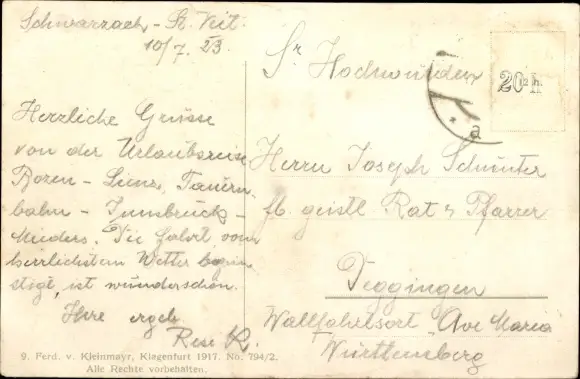 Schwarzach - St. Veit.
10/7. 23.
Herrliche Grüsse
von der Urlaubsreise
Bozen - Lienz, Tauern-
bahn - Innsbruck -
Mieders. Die Fahrt vom
herrlichsten Wetter begün-
stigt, ist wunderschön.
Ihre ergeb.
Resi K.
9. Ferd. v. Kleinmayr, Klagenfurt 1917. No. 794/2.
Alle Rechte vorbehalten.
Sr Hochwürden
20 h.
a
Herrn Joseph
fb. geistl Rat & Pfarrer
Deggingen
Wallfahrtsort Ave Maria
Württemberg